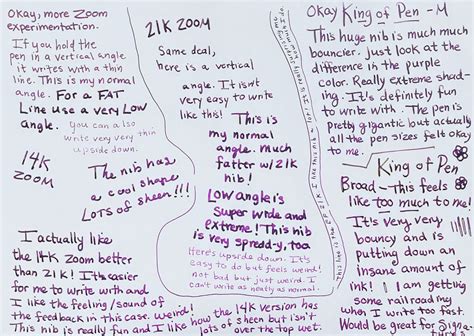 Okay, more Zoom
experimentation.
If you hold the
pen in a vertical angle
it writes with a thin
line. This is my normal
angle. For a FAT
Line use a very Low
angle. you can also
write very very thin
upside down.
14K
ZOOM
The nib has
a cool shape
LOTS of sheen!!!
I actually like
the 14K zoom better
than 21K! It's easier
for me to write with and
I like the feeling/sound of
the feedback in this case. Weird!
This nib is really fun and I like
how the 14K version has
lots of sheen but isn't
over the top wet
21K ZOOM
Same deal,
here is a vertical
angle. It isn't
very easy to write
like this! This is
my normal
angle. Much
fatter w/21K
nib!
LOW angle is
Super wide and
extreme! This nib
is very spread-y, too
Here's upside down. It's
easy to do but feels weird!
not bad but just weird. I
can't write as neatly as normal.
Okay King of Pen -M
This huge nib is much much
bouncier. just look at the
difference in the purple
color. Really extreme shad-
ing. It's definitely fun
to write with. The pen is
pretty gigantic but actually
all the pen sizes felt okay
to me.
King of Pen
Broad - This feels
like too much to me!
It's very very
bouncy and is
putting down an
insane amount of
ink! I am getting
some railroading
when I write too fast.
Would be great for